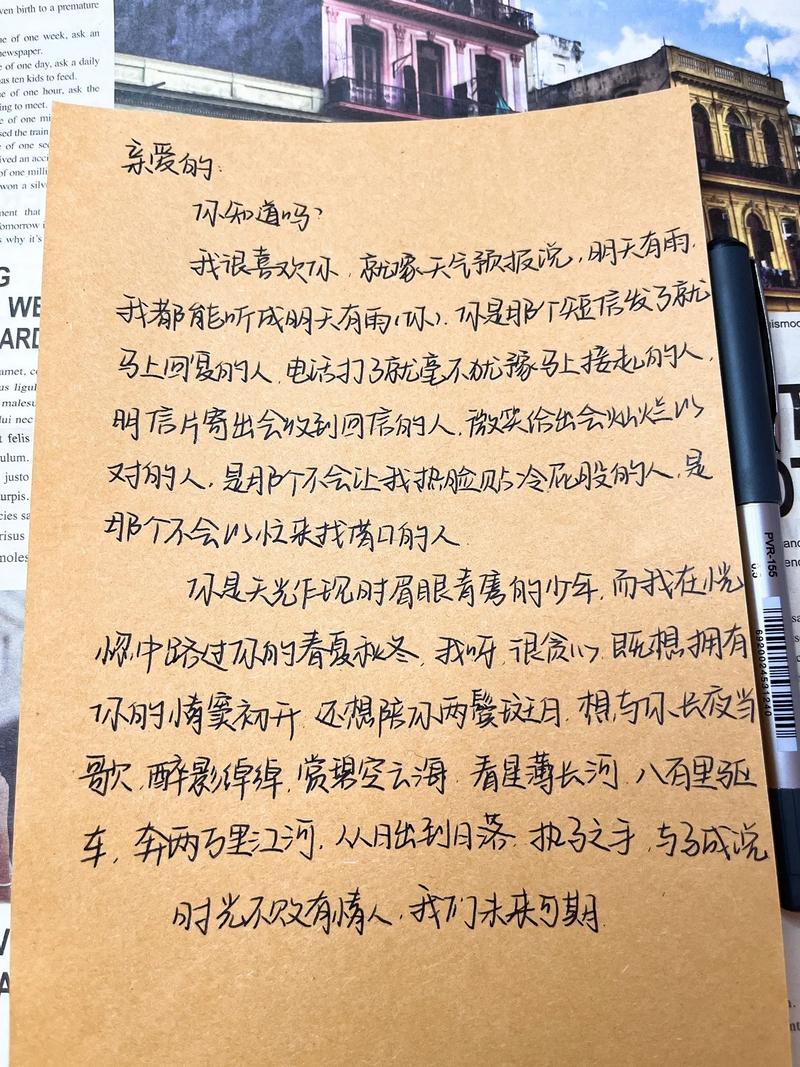 亲爱的:
你知道吗?
我很喜欢你,就象天气预报说,明天有雨,
我都能听成明天有雨(你).你是那个短信发了就
马上回复的人,电话打了就毫不犹豫马上接起的人,
明信片寄出会收到回信的人,微笑给出会灿烂以
对的人,是那个不会让我热脸贴冷屁股的人,是
那个不会以忙来找借口的人.
你是天光乍现时眉眼青隽的少年,而我在恍
惚中路过你的春夏秋冬,我呀,很贪心,既想拥有
你的情窦初开,还想陪你两鬓斑白.想与你长夜当
歌,醉影绰绰,赏碧空云海,看星薄长河,八百里驱
车,奔两万里江河,从日出到日落,执子之手,与子成说
时光不败有情人,我们未来可期.
PVR-155
0.5
ven birth to a premature
e of one week, ask an
newspaper.
e of one day, ask a daily
as ten kids to feed.
e of one hour, ask the
ng to meet.